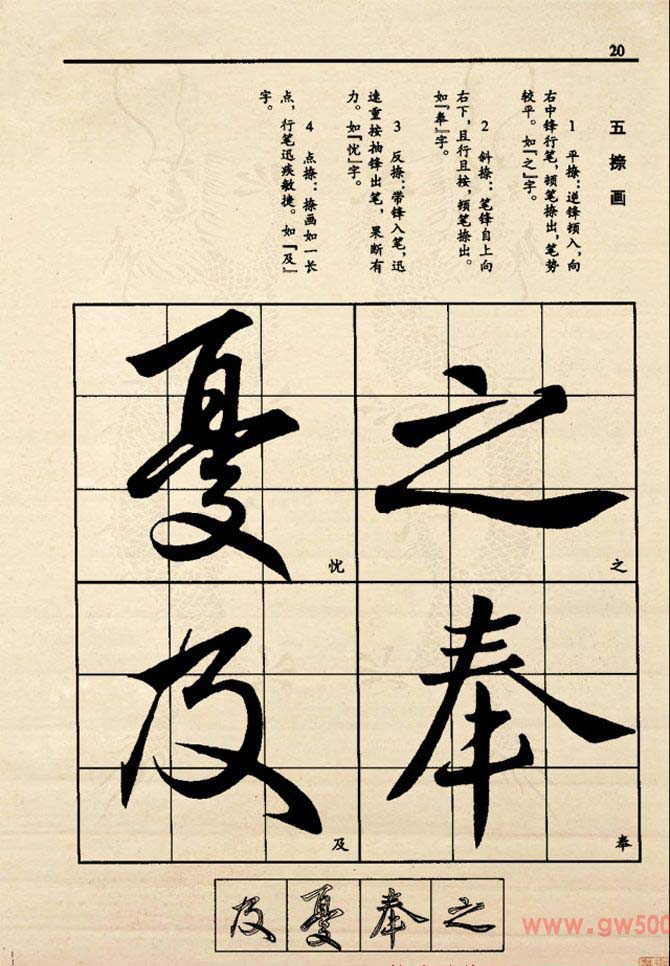 20
五 捺 画
1 平捺：逆锋顿入，向
右中锋行笔，顿笔捺出，笔势
较平。如『之』字。
2 斜捺：笔锋自上向
右下，且行且按，顿笔捺出。
如『奉』字。
3 反捺：带锋入笔，迅
速重按抽锋出笔，果断有
力。如『忧』字。
4 点捺：捺画如一长
点，行笔迅疾敏捷。如『及』
字。
之
之
奉
奉
憂
忧
及
及
及 憂 奉 之
www.gw500